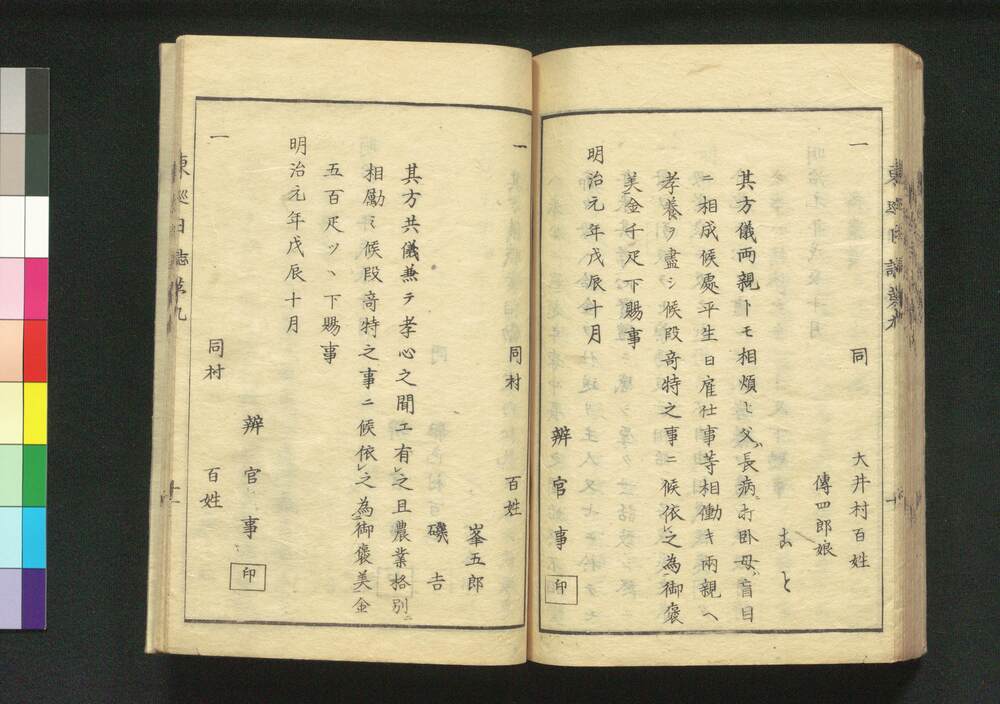 一 同 大井村百姓
傳四郎娘
おと
其方儀両親トモ相煩ヒ父ハ長病ニ打卧母ハ盲目
ニ相成候處平生日雇仕事等相働キ兩親ヘ
孝養ヲ盡シ候段竒特之事ニ候依レ之為御褒
美金千疋下賜事
明治元年戊辰十月
辨官事 印
一 同村 百姓
峯五郎
磯吉
其方共儀兼テ孝心之聞エ有レ之且農業格別ニ
相勵ミ候段竒特之事ニ候依レ之為御褒美金
五百疋ツヽ下賜事
明治元年戊辰十月
辨官事 印
一 同村 百姓
東巡日誌第九